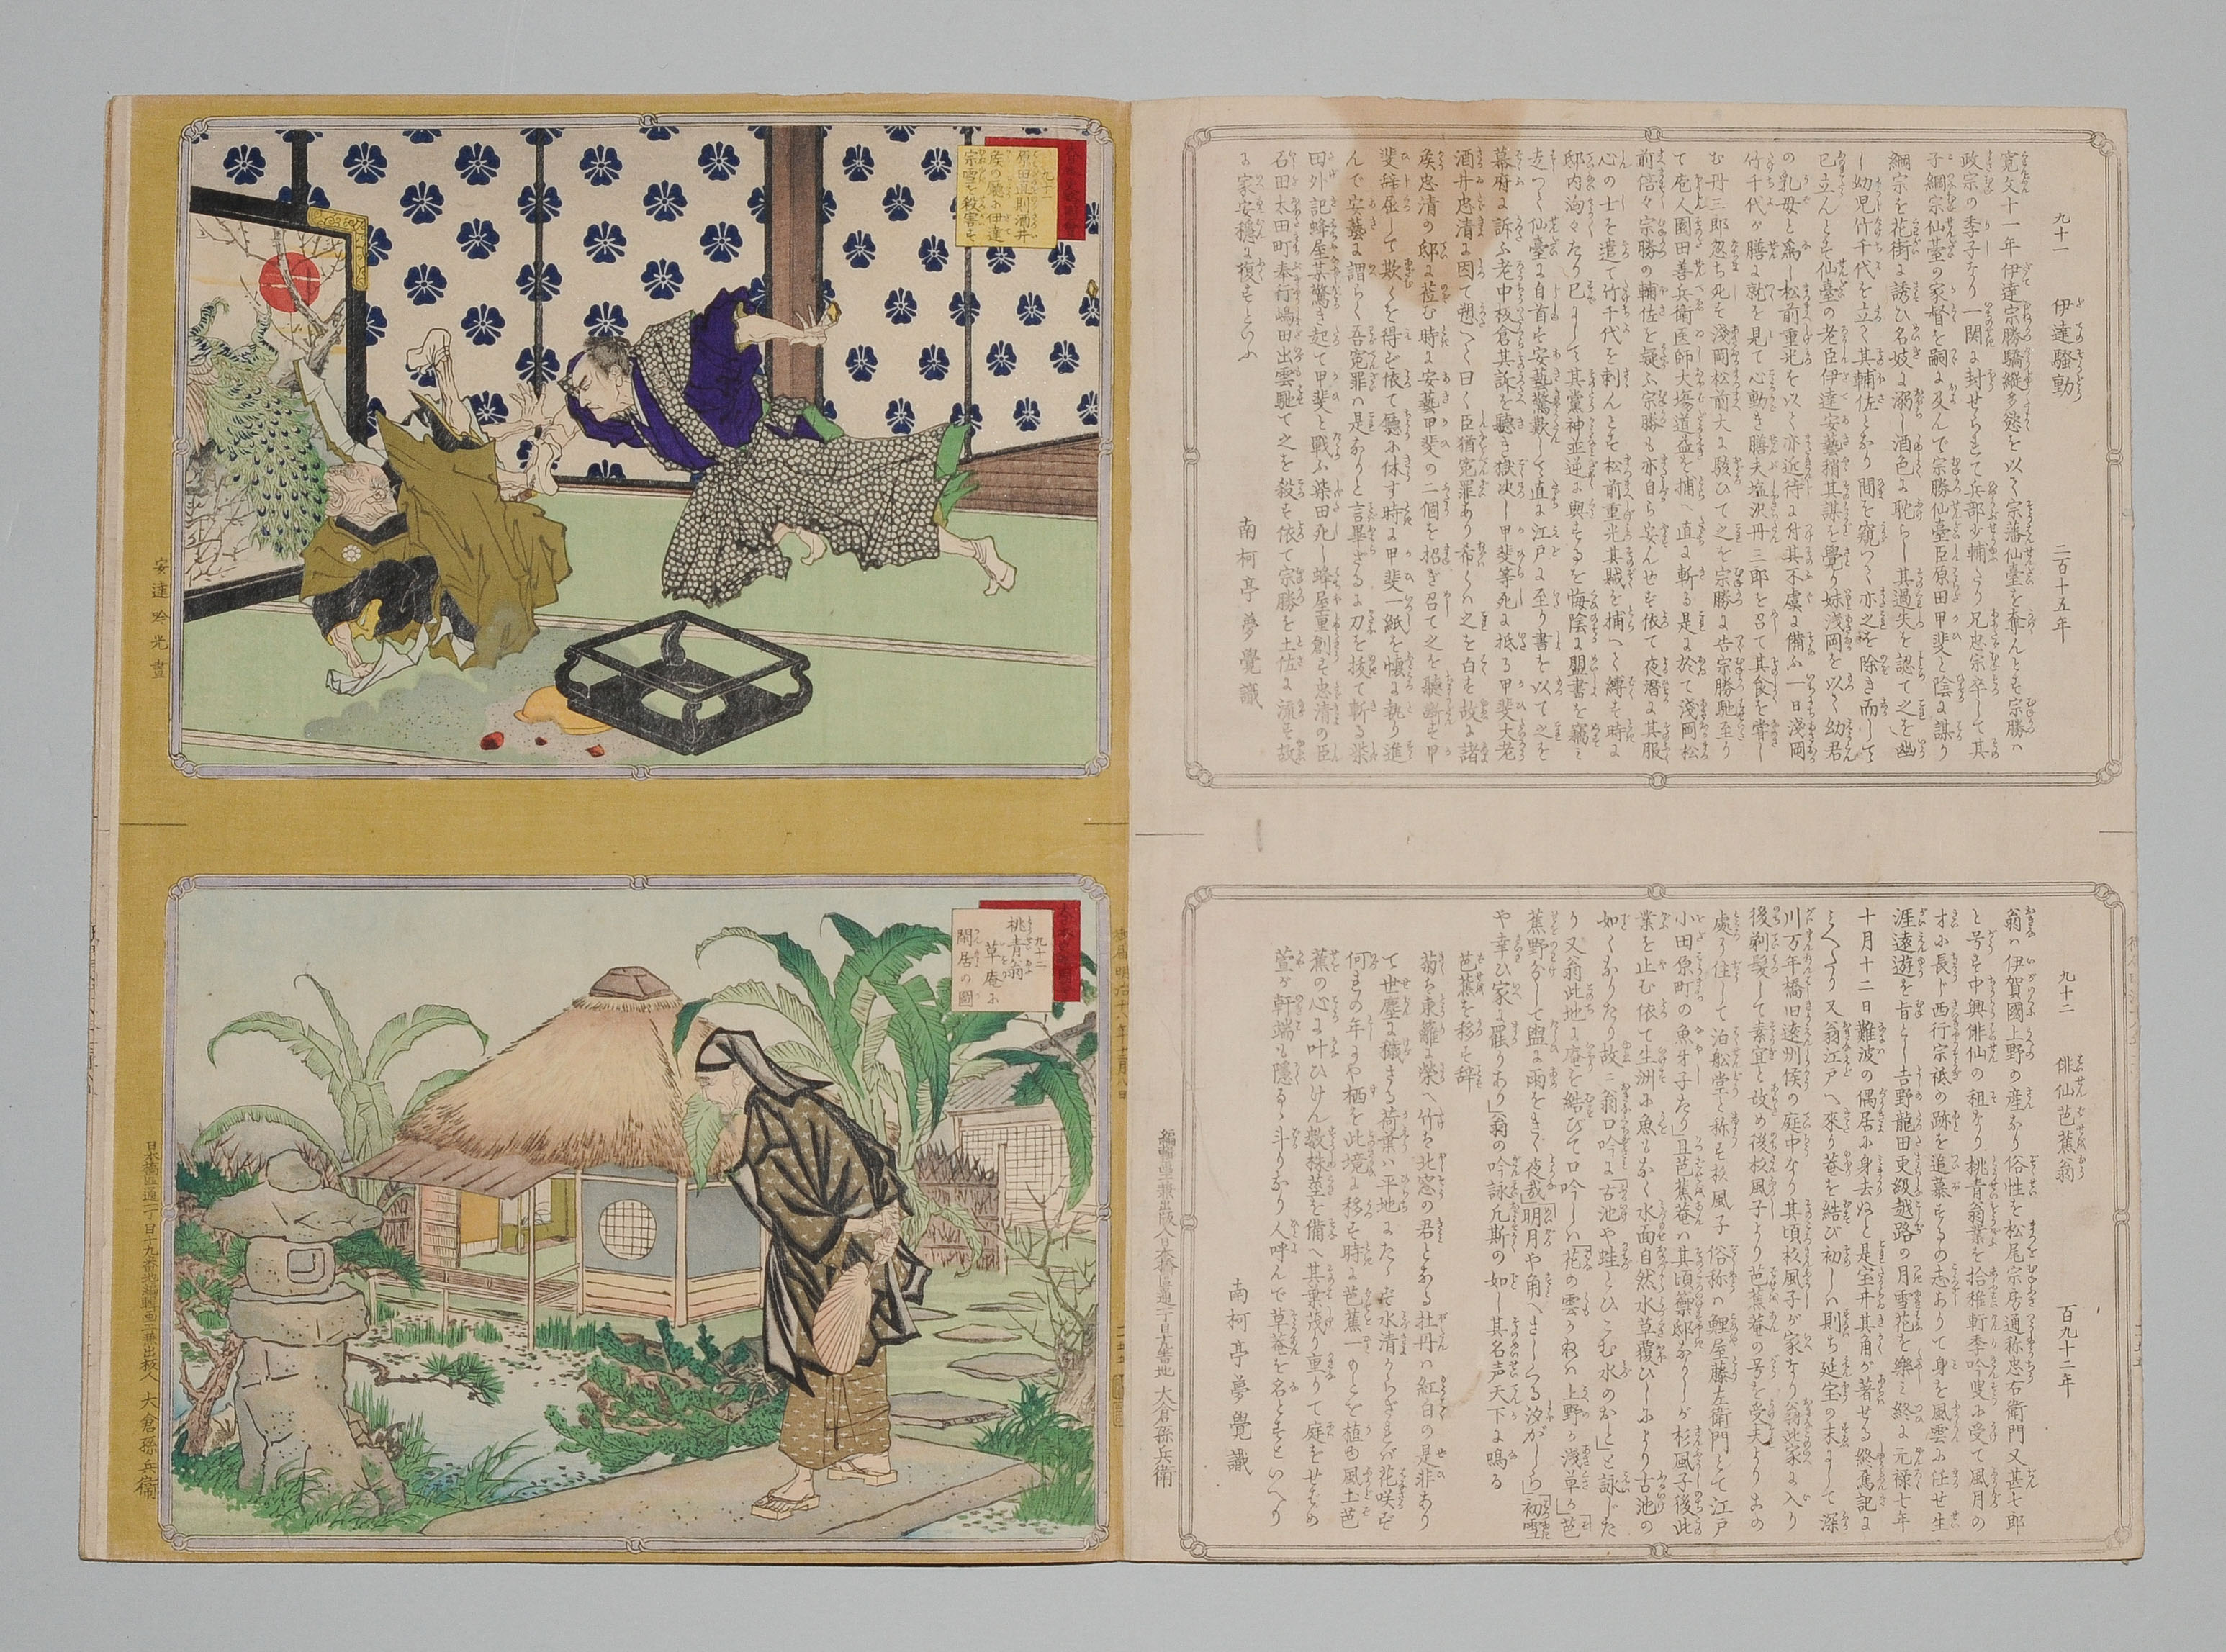 九十一　伊達騒動　二百十五年
寛文十一年伊達宗勝驕縦多慾を以て宗藩仙臺を奪んとす宗勝ハ
政宗の季子なり一関に封せられて兵部少輔たり兄忠宗卒して其
子綱宗仙臺の家督を嗣に及んで宗勝仙臺臣原田甲斐と陰に謀り
綱宗を花街に誘ひ名妓に溺し酒色に耽らし其過失を認て之を幽
し幼児竹千代を立て其輔佐となり間を窺つて亦之を除き而して
己立んとす仙臺の老臣伊達安藝稍其謀を覺り妹浅岡を以て幼君
の乳母と為し松前重光を以て亦近待に付其不虞に備ふ一日浅岡
竹千代が膳に就を見て心動き膳夫塩沢丹三郎を召て其食を甞し
む丹三郎忽ち死す浅岡松前大に駭ひて之を宗勝に告宗勝馳至り
て庖人園田善兵衛医師大場道益を捕へ直に斬る是に於て浅岡松
前倍々宗勝の輔佐を疑ふ宗勝も亦自ら安んせず依て夜潜に其服
心の士を遣て竹千代を刺んとす松前重光其賊を捕へて縛す時に
邸内洶々たり已にして其黨神並逆に與するを悔陰に盟書を竊ミ
走つて仙臺に自首す安藝驚歎して直に江戸に至り書を以て之を
幕府に訴ふ老中板倉其訴を聽き獄决し甲斐等死に抵る甲斐大老
酒井忠清に因て愬へて曰く臣猶冤罪あり希くハ之を白す故に諸
矦忠清の邸に莅む時に安藝甲斐の二個を招ぎ召て之を聽斷す甲
斐辞屈して欺くを得ず依て廳に休す時に甲斐一紙を懐に執り進
んで安藝に謂らく吾冤罪ハ是なりと言畢ざるに刀を抜て斬る柴
田外記蜂屋某驚き起て甲斐と戰ふ柴田死し蜂屋重創す忠清の臣
石田太田町奉行嶋田出雲馳て之を殺す依て宗勝を土佐に流す故
に家安穏に復すといふ
南柯亭夢覺識
九十二　俳仙芭蕉翁　百九十二年
翁ハ伊賀國上野の産なり俗性を松尾宗房通称忠右衛門又甚七郎
と号す中興俳仙の租なり桃青翁業を拾穂軒季吟叟に受て風月の
才に長じ西行宗祗の跡を追慕するの志ありて身を風雲に任せ生
涯遠遊を旨とし吉野龍田更級越路の月雪花を樂ミ終に元禄七年
十月十二日難波の偶居に身去ぬと是宝井其角が著せる終焉記に
ミへたり又翁江戸へ來り菴を結び初しハ則ち延宝の末にして深
川万年橋旧遠州候の庭中なり其頃杉風子が家なり翁此家に入り
後剃髪して素宜と改め後杉風子より芭蕉菴の号を受夫よりこの
處に住して泊船堂と称す杉風子俗称ハ鯉屋藤左衛門とて江戸
小田原町の魚牙子たり且芭蕉菴ハ其頃籞邸なりしが杉風子後此
業を止む依て生洲に魚もなく水面自然水草覆ひしにより古池の
如くなりたり故に翁口吟に「古池や蛙とひこむ水のおと」と詠じた
り又翁此地に庵を結びて口吟しハ「花の雲かねハ上野か淺草か」「芭
蕉野分して盥に雨をきく夜哉」「明月や角へさしくる汐がしら」「初雪
や幸ひ家に罷りあり」翁の吟詠凡斯の如し其名声天下に鳴る
芭蕉を移す辞
菊ハ東籬に榮へ竹ハ北窓の君となる牡丹ハ紅白の是非あり
て世塵に穢さる荷葉ハ平地にたたず水清からざれバ花咲ず
何れの年にや栖を此境に移す時に芭蕉一もとを植る風土芭
蕉の心に叶ひけん数株茎を備へ其葉茂り重りて庭をせばめ
萱が軒端も隠るゝ斗りなり人呼んで草菴を名とすといへり
南柯亭夢覺識
九十一
原田直則酒井
矦の廳に伊達
宗雪を殺害す
安達吟光畫
九十二
桃青翁
草庵に
閑居の圖
編輯画工兼出版人日本橋區通一丁目十九番地　大倉孫兵衛
日本橋區通一丁目十九番地編輯画工兼出板人　大倉孫兵衛